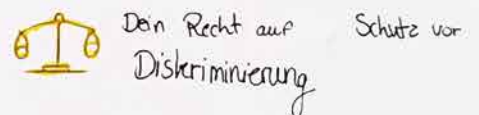 Dein Recht auf Schutz vor
Diskriminierung